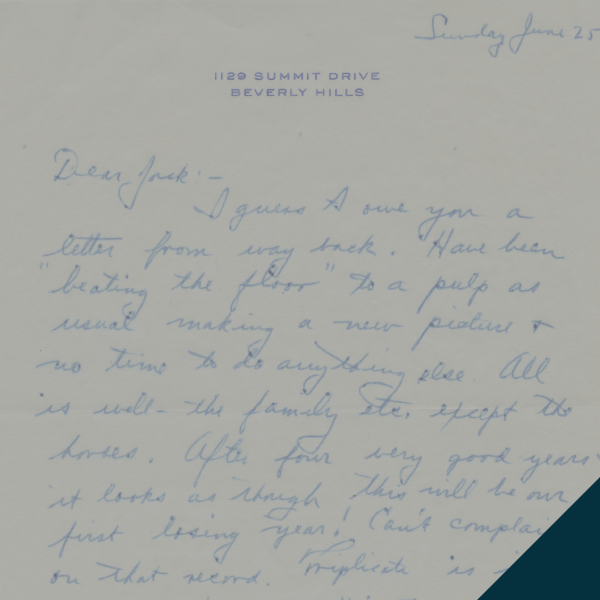 Sunday June 25
1129 SUMMIT DRIVE
BEVERLY HILLS
Dear Jack:-
I guess I owe you a
letter from way back. Have been
"beating the floor" to a pulp as
usual making a new picture +
no time to do anything else. All
is well - the family etc. except the
horses. After four very good years
it looks as though this will be our
first losing year! Can't complain
on that record. Triplicate is